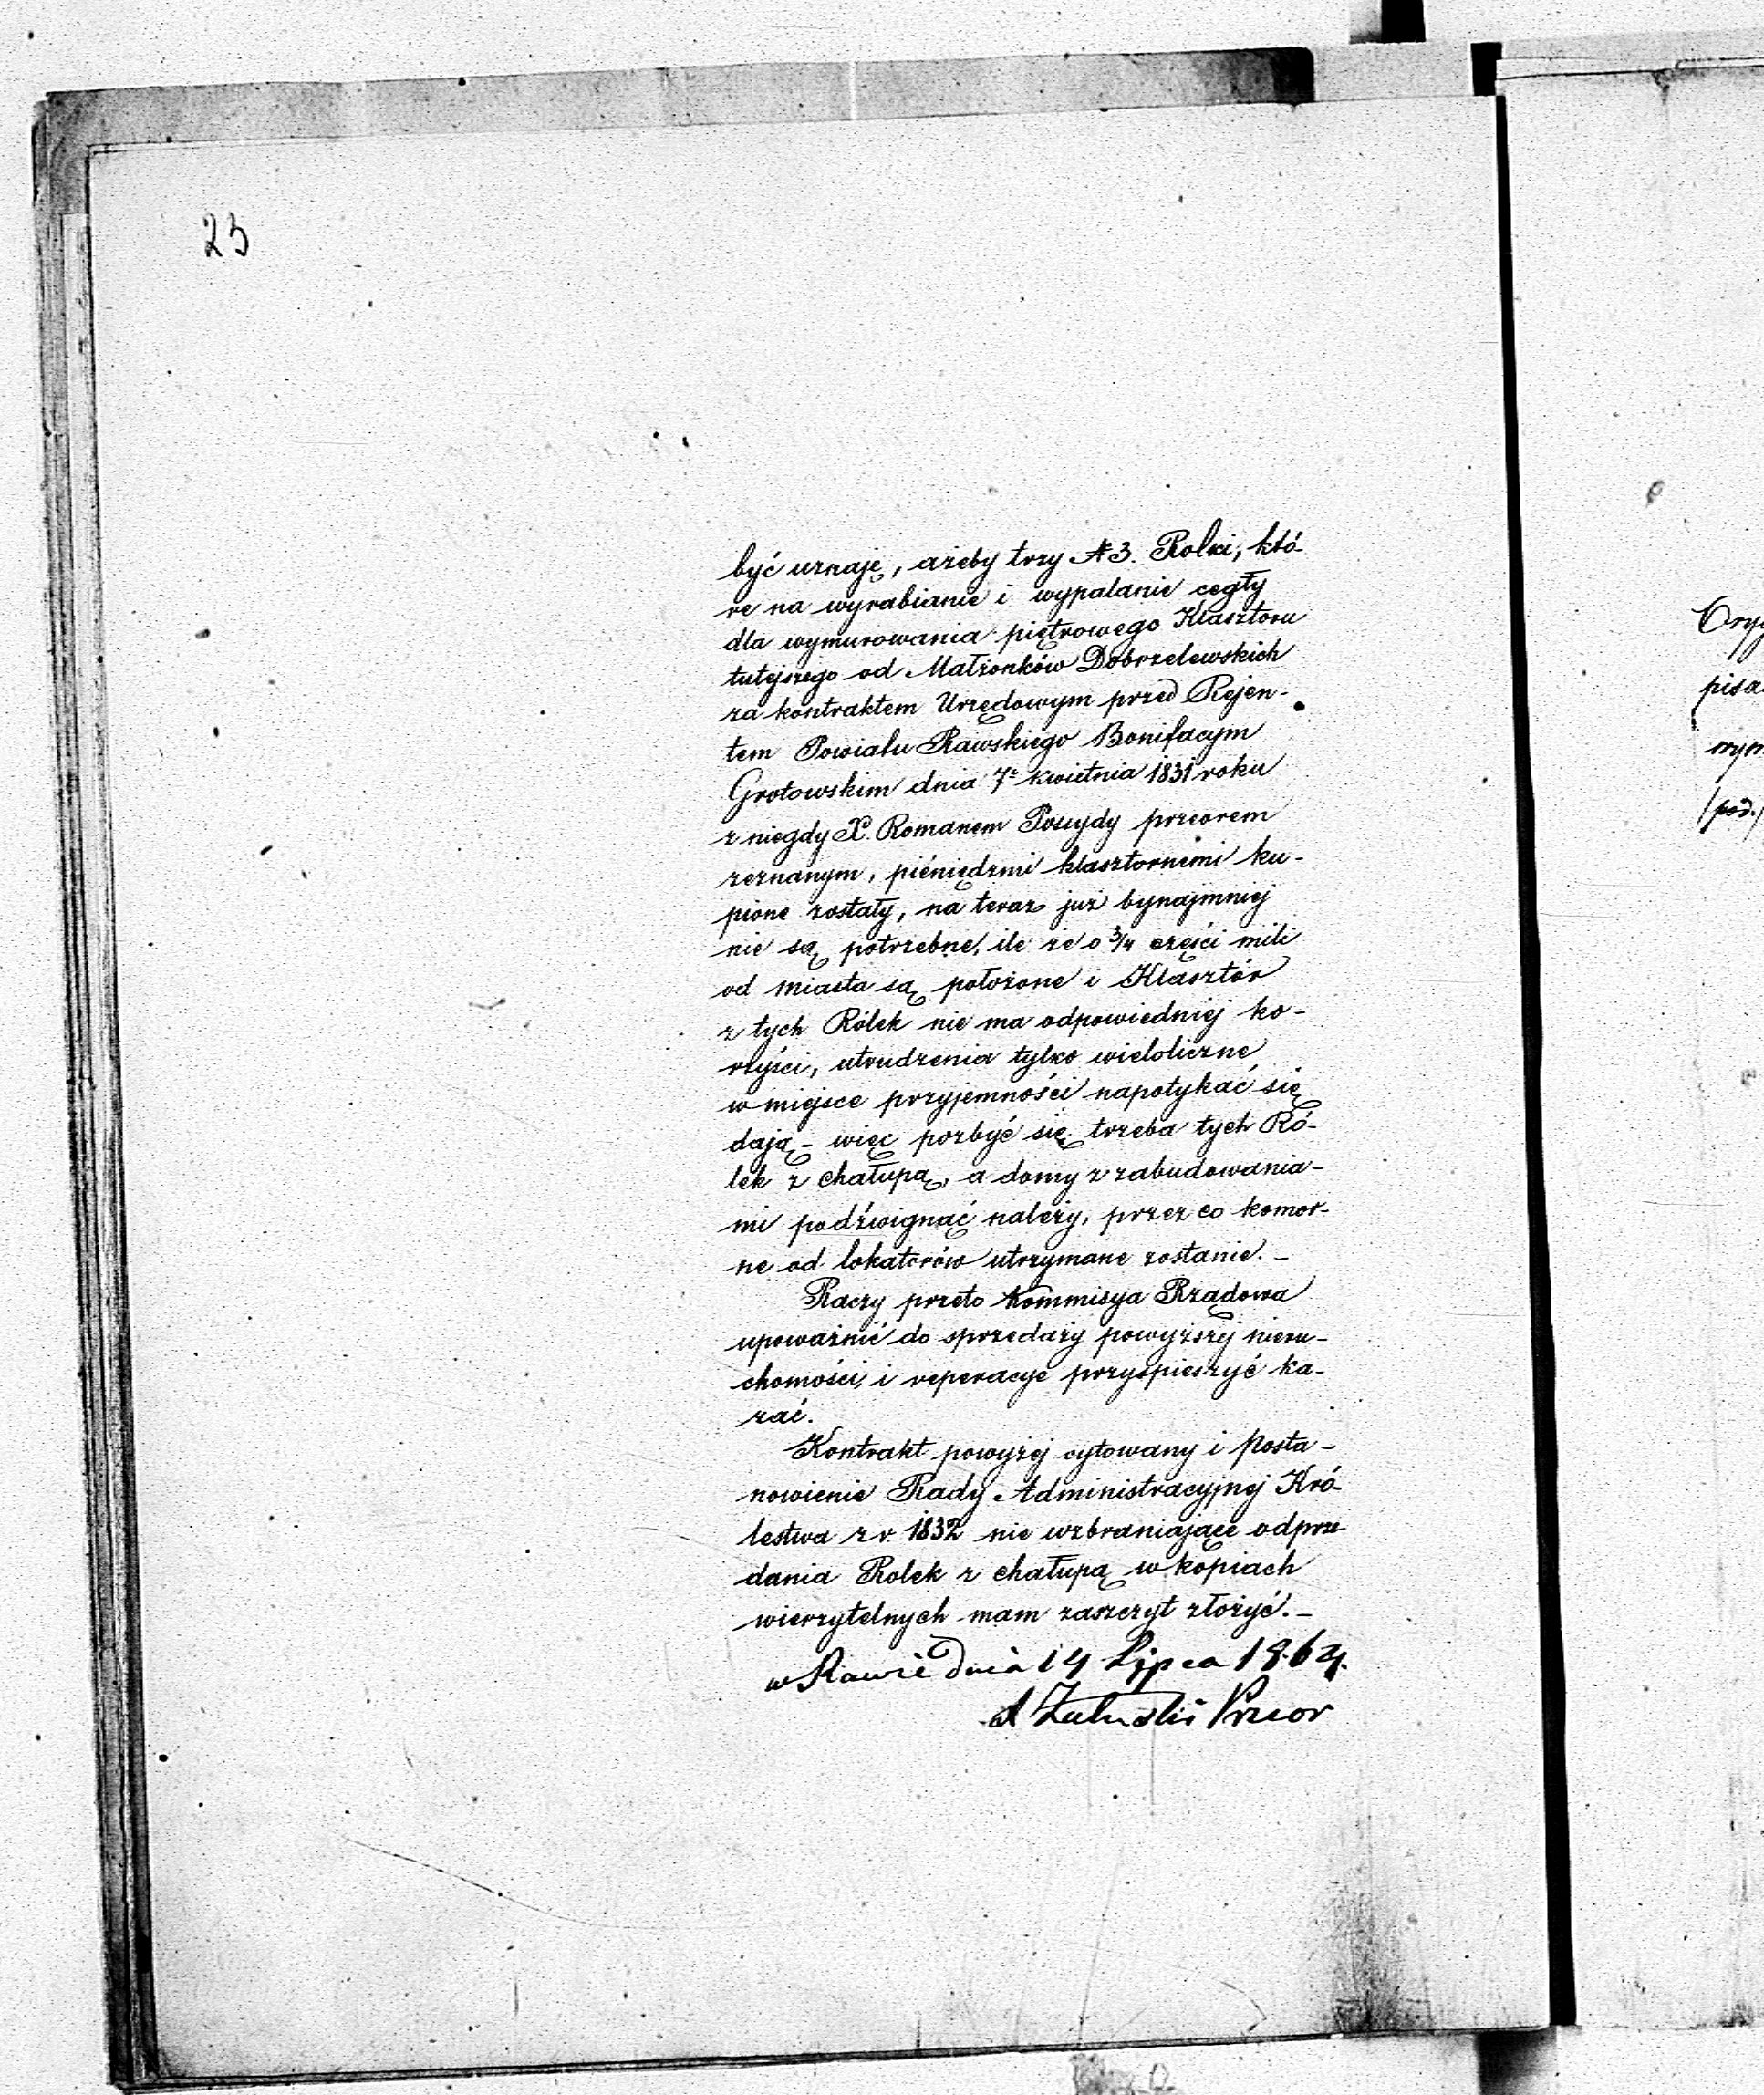 23
być uznaję, ażeby trzy № 3. Rolki, któ-
re na wyrabianie i wypalanie cegły
dla wymurowania piętrowego Klasztoru
tutejszego od Małżonków Dobrzelewskich
za kontraktem Urzędowym przed Rejen-
tem Powiatu Rawskiego Bonifacym
Grotowskim dnia 7º kwietnia 1831 roku
z niegdy X. Romanem Possydy przeorem
zeznanym, pieniędzmi klasztornemi ku-
pione zostały, na teraz już bynajmniej
nie są potrzebne, ile że o 3/4 części mili
od miasta są położone i Klasztór
z tych Rólek nie ma odpowiedniej ko-
rzyści, utrudzenia tylko wieloliczne
w miejsce przyjemności napotykać się
dają – więc pozbyć się trzeba tych Ró-
lek z chałupą, a domy z zabudowania-
mi podźwignąć należy, przez co komor-
ne od lokatorów utrzymane zostanie. –
Raczy przeto Kommisya Rządowa
upoważnić do sprzedaży powyższej nieru-
chomości, i reperacye przyspieszyć ka-
zać.
Kontrakt powyżej cytowany i Posta-
nowienie Rady Administracyjnej Kró-
lestwa z r. 1832 nie wzbraniające odprze-
dania Rolek z chałupą w kopiach
wierzytelnych mam zaszczyt złożyć. –
w Rawie dnia 14 Lipca 1864.
Przeor
Ory
pisa
wym
/pod./